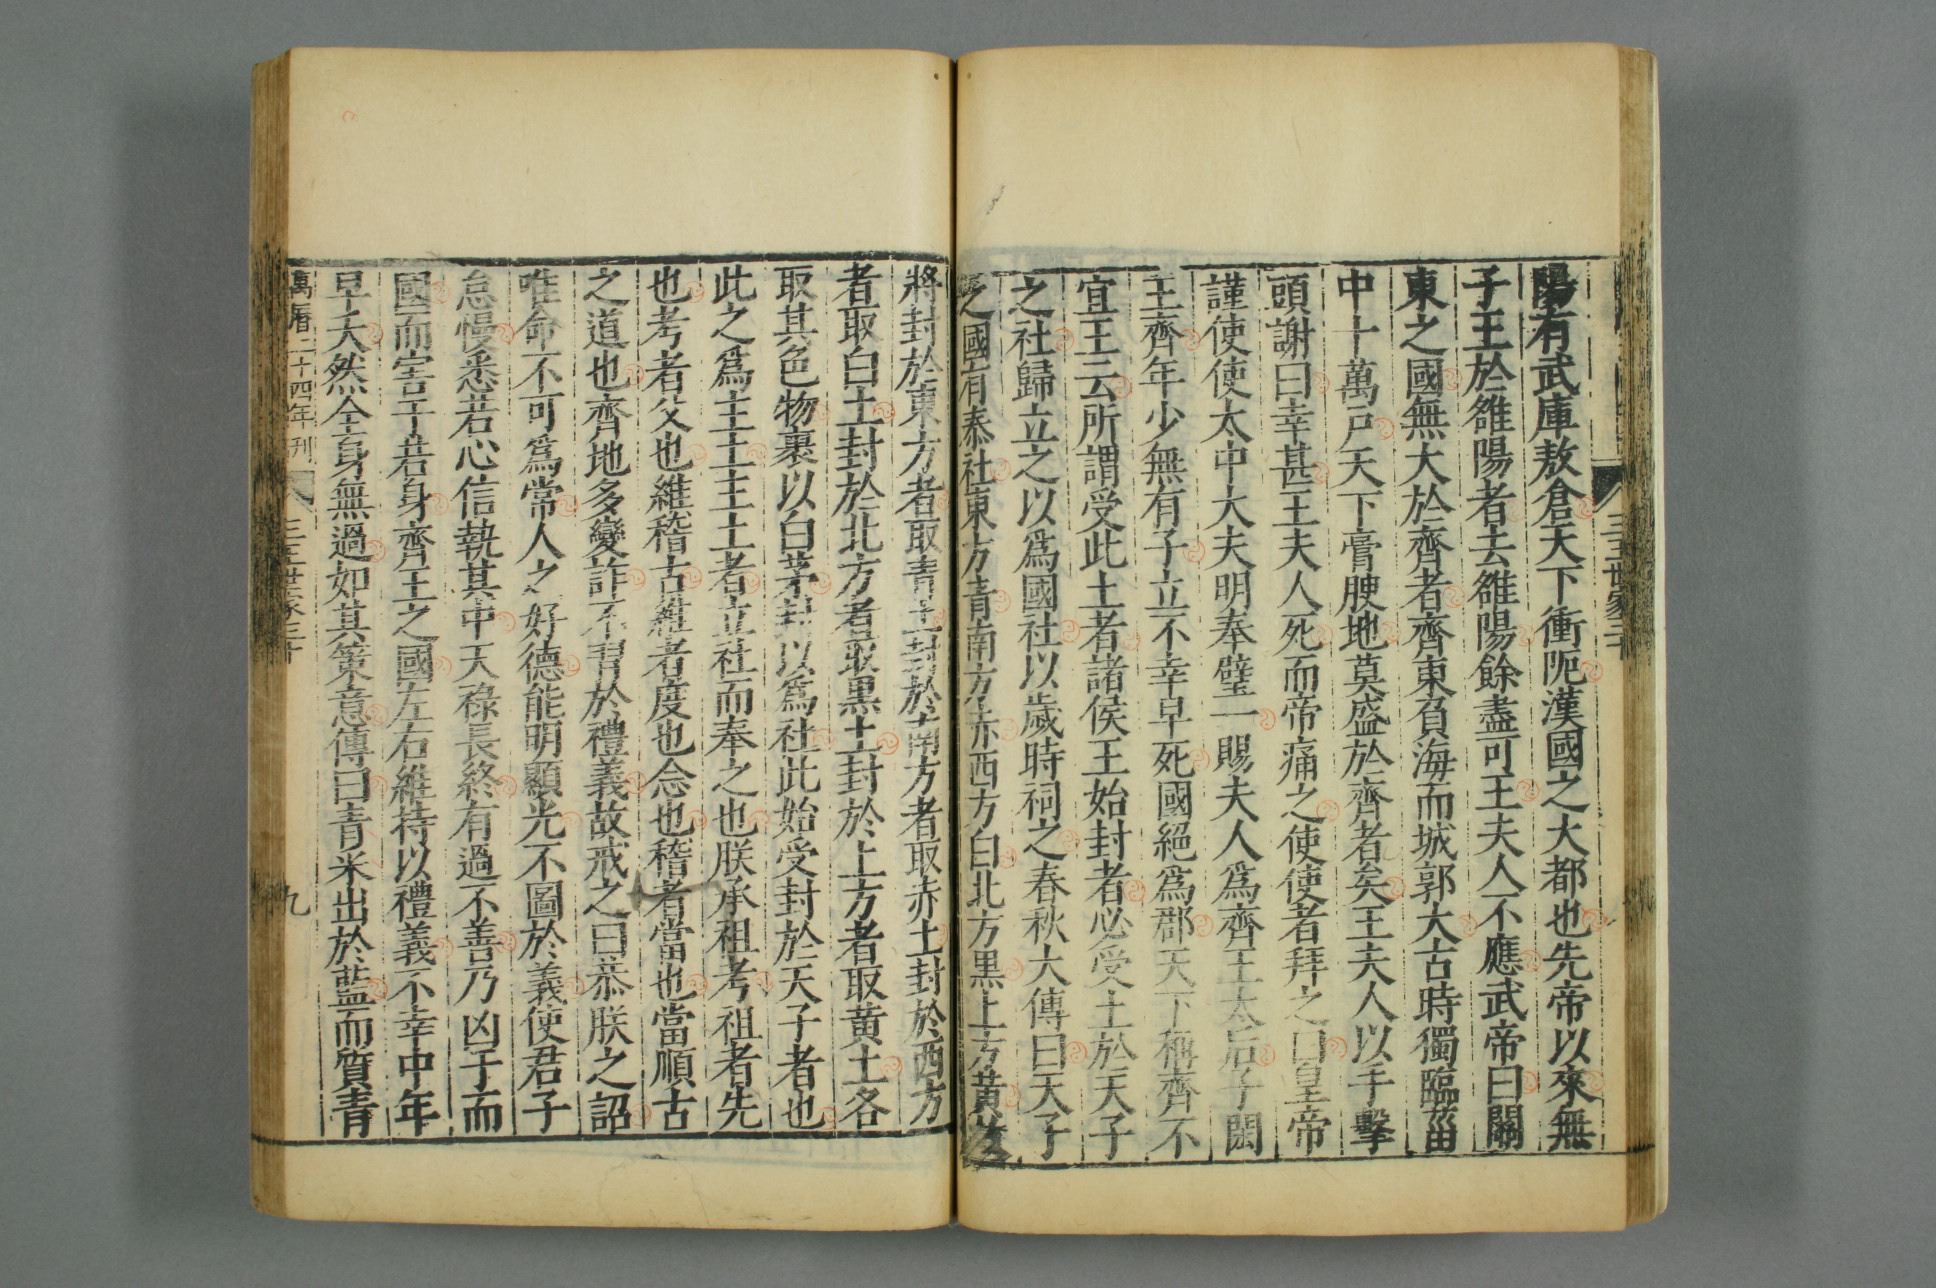 陽有武庫敖倉天下衝阨漢國之大都也先帝以來無
子王於雒陽者去雒陽餘盡可王夫人不應武帝曰關
東之國無大於齊者齊東負海而城郭大古時獨臨菑
中十萬戸天下膏腴地莫盛於齊者矣王夫人以手擊
頭謝曰幸甚王夫人死而帝痛之使使者拜之曰皇帝
謹使使太中大夫明奉璧一賜夫人爲齊王太后子閎
王齊年少無有子立不幸早死國絕爲郡天下稱齊不
宜王云所謂受此土者諸侯王始封者必受土於天子
之社歸立之以爲國社以歲時祠之春秋大傳曰天子
之國有泰社東方青南方赤西方白北方黒上方黄故
三王世家三十
將封於東方者取青土封於南方者取赤土封於西方
者取白土封於北方者取黒土封於上方者取黄土各
取其色物裹以白茅封以爲社此始受封於天子者也
此之爲主土主土者立社而奉之也朕承祖考祖者先
也考者父也維稽古維者度也念也稽者當也當順古
之道也齊地多變詐不習於禮義故戒之曰恭朕之詔
唯命不可爲常人之好德能明顯光不圖於義使君子
怠慢悉若心信執其中天祿長終有過不善乃凶于而
國而害于若身齊王之國左右維持以禮義不幸中年
早夭然全身無過如其策意傳曰青采出於藍而質青
萬曆二十四年刊
三王世家三十
九